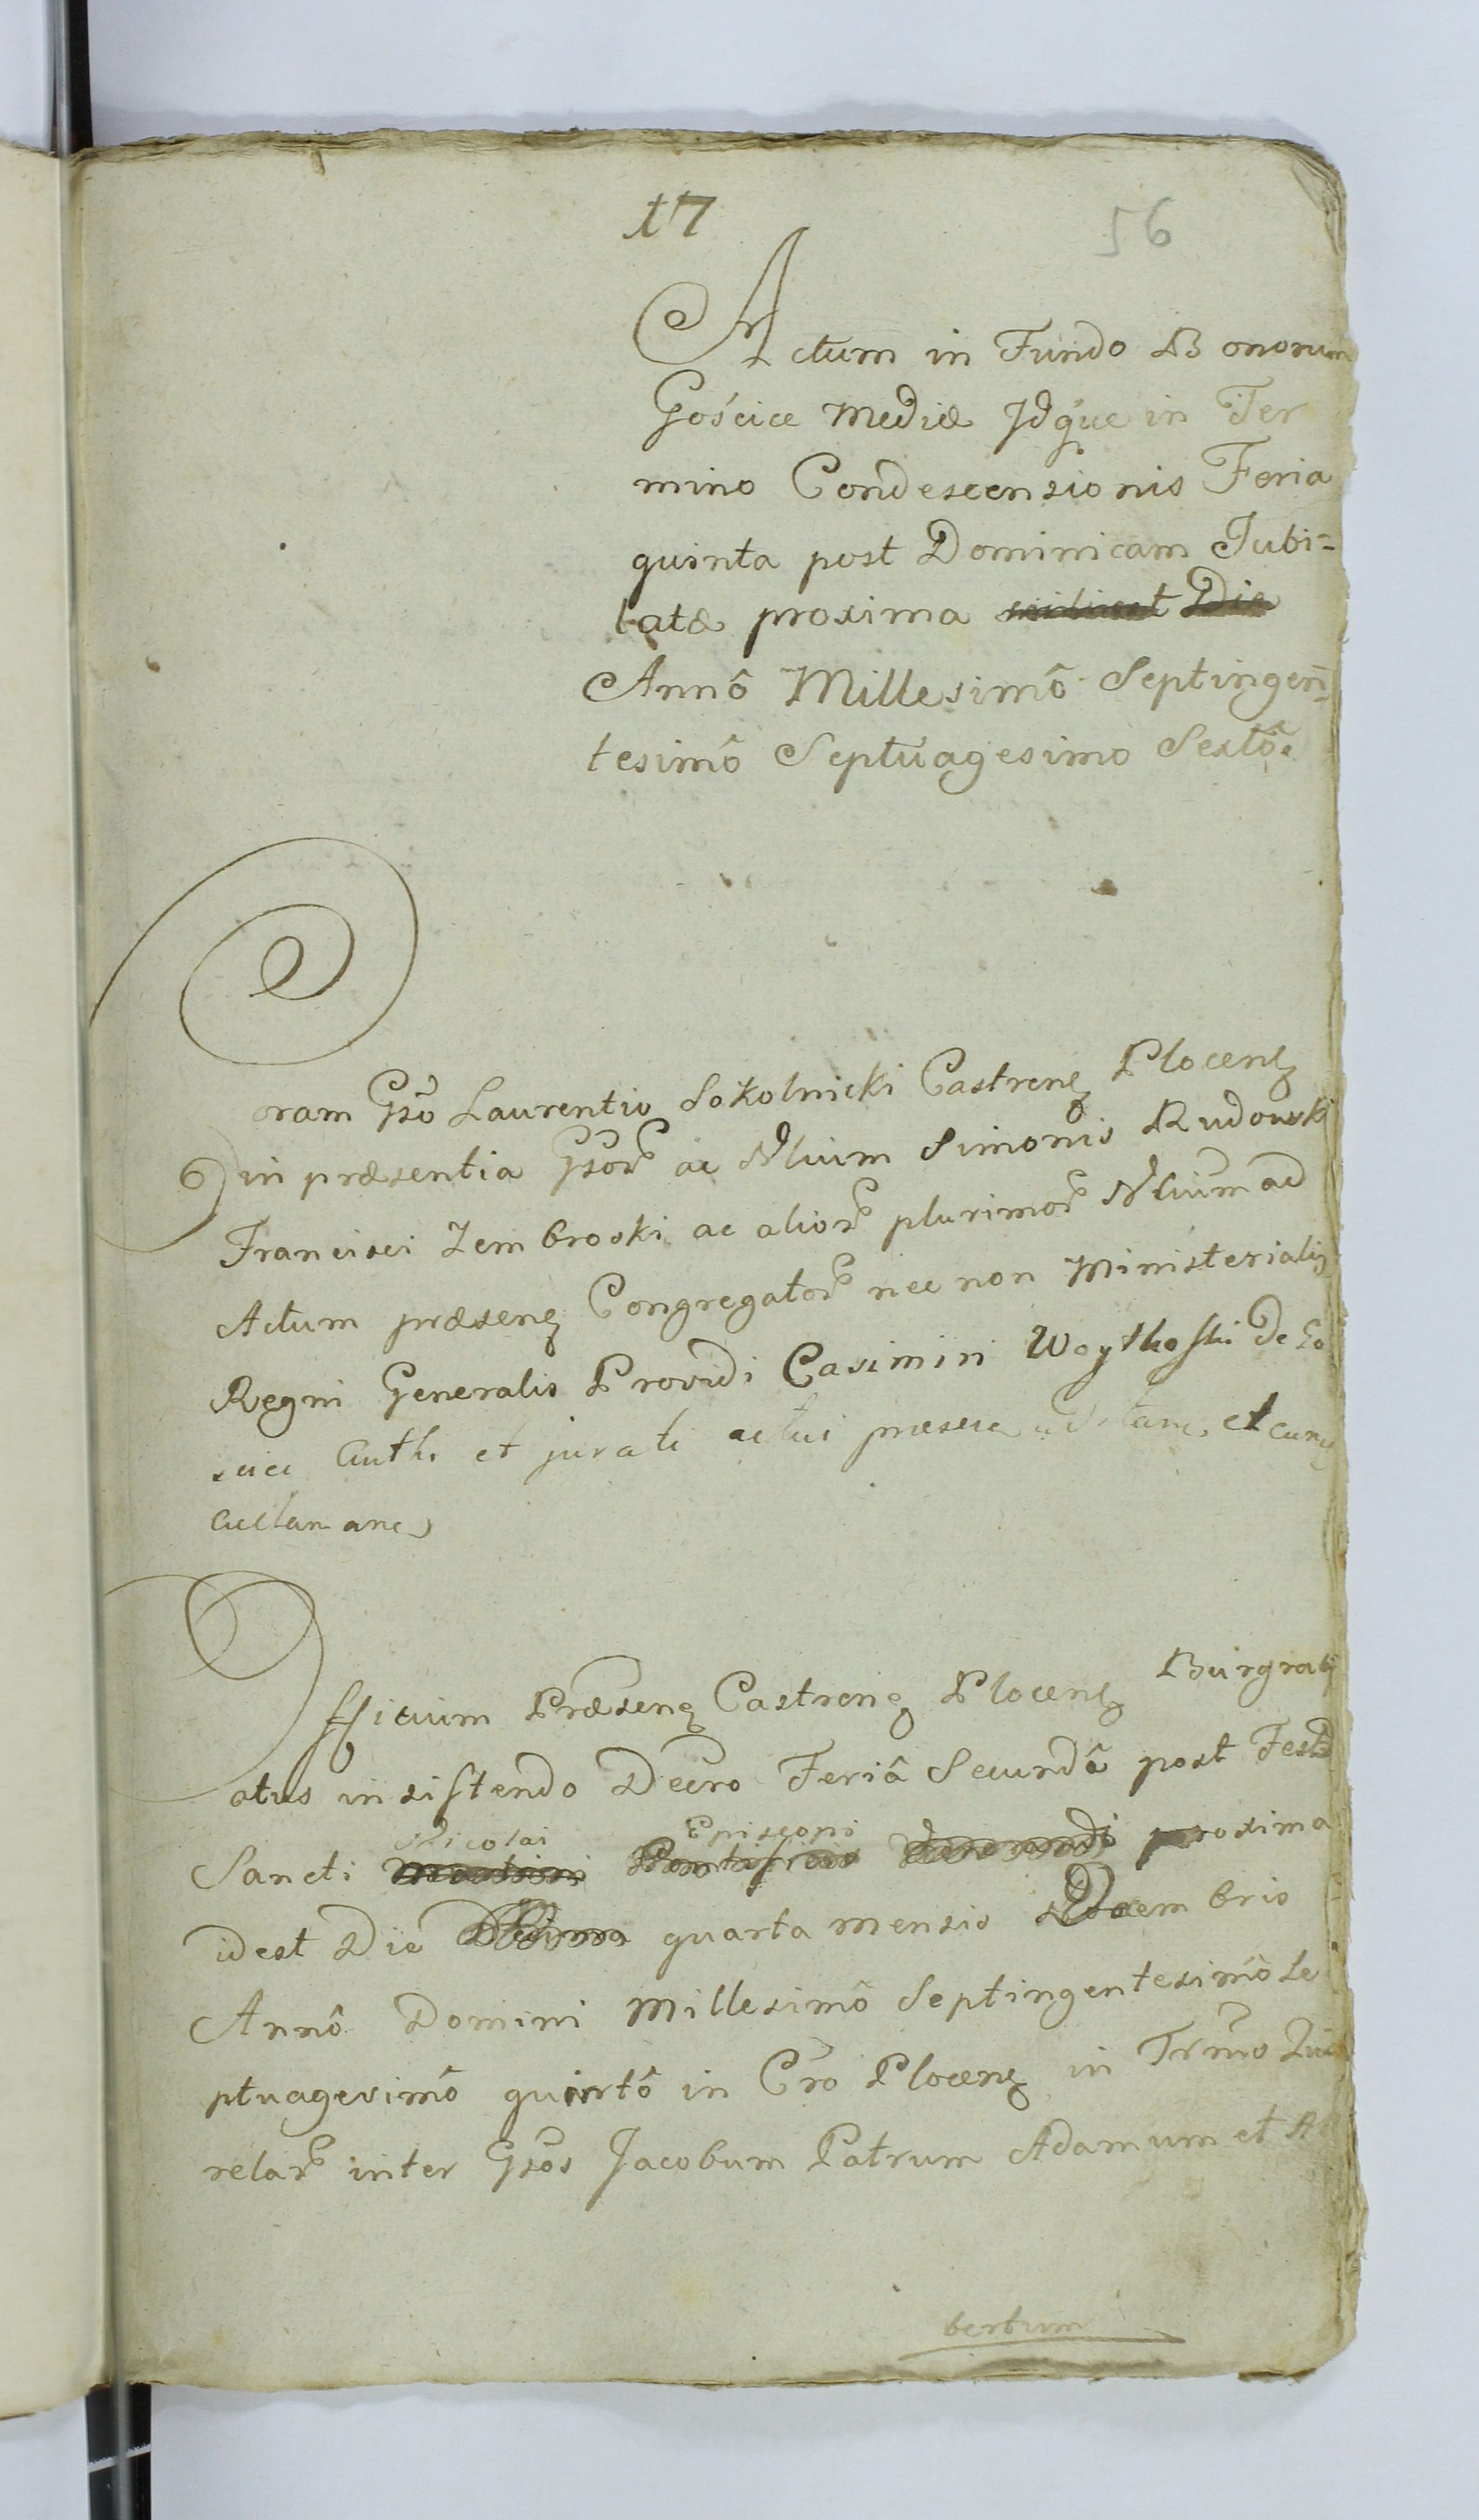 17
56
Actum in Fundo Bonorum
Gościce Mediæ Jdque in Ter
mino Condescensionis Feria
quinta post Dominicam Jubi=
latæ proxima scilicet Die
Annô Millesimô Septingen=
tesimô Septuagesimo Sextô.
Coram Gso Laurentio Sokolnicki Castreng Ploceng
in præsentia Gsor ac Nlium Simonis Rudowski
Francisci Zembroski ac alior plurimor Nlium ad
Actum præseng Congregator nec non Ministerialis
Regni Generalis Providi Casimiri Woytkoski de Go
scice Auth et jurati actui et
Officium Præseng Castreng Ploceng Burgrabi
atus insistendo Decro Feriâ Secundâ post Festd
Nicolai Episcopi
Sancti Martini Pontificis proxima
idest Die Decima quarta mensis Decembris
Annô Domini Millesimô Septingentesimô Se
ptuagesimô quintô in Cro Ploceng in Trmo Que
relar inter Gsos Jacobum Patrum Adamum et Al
bertum